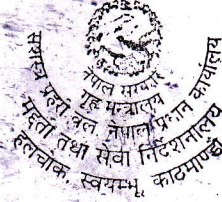 नेपाल सरकार
गृह मन्त्रालय
सशस्त्र प्रहरी बल, नेपाल प्रधान कार्यालय
भर्ती तथा सेवा निर्देशनालय
हलचोक, स्वयम्भू, काठमाण्डौ